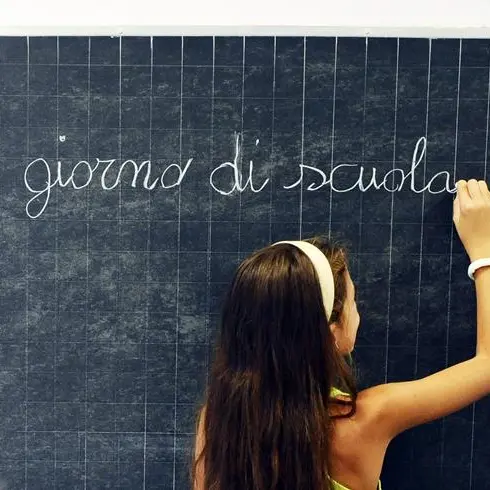 giorno di scuola